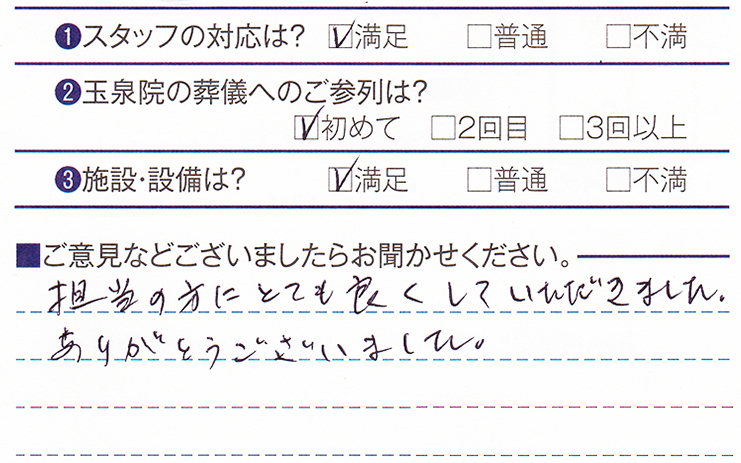 ❶スタッフの対応は? ☑満足 □普通 □不満
❷玉泉院の葬儀へのご参列は?
☑初めて □2回目 □3回以上
❸施設・設備は? ☑満足 □普通 □不満
■ご意見などございましたらお聞かせください。
担当の方にとても良くしていただきました。
ありがとうございました。